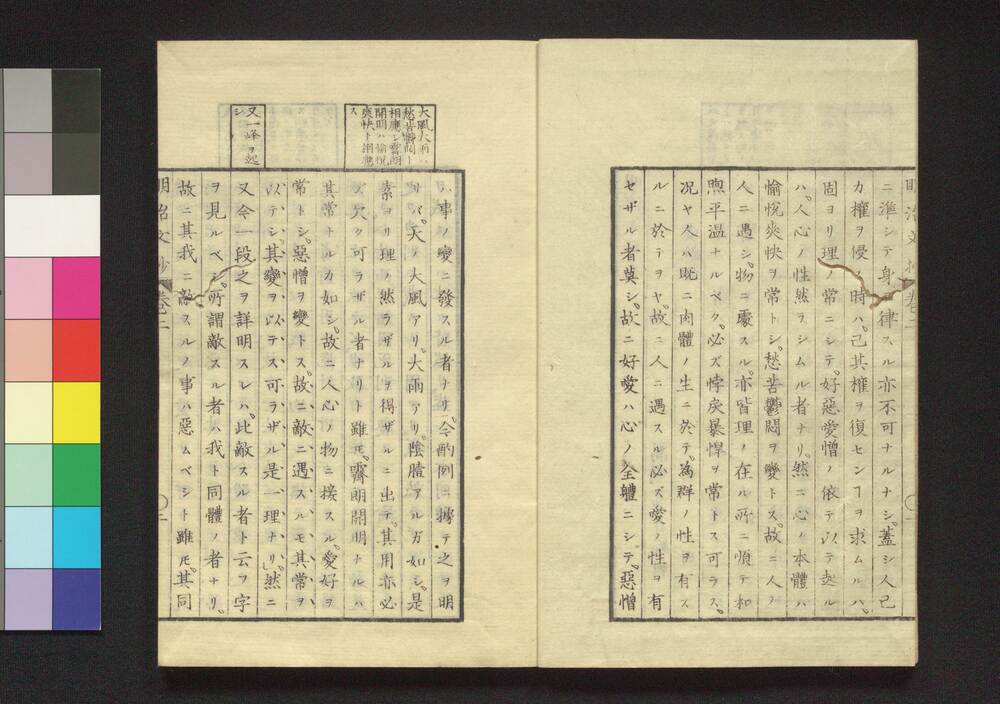 ニ準シテ身ヲ律スル亦不可ナルナシ。蓋シ人己
カ權ヲ侵ス時ハ。己其權ヲ復センヿヲ求ムルハ。
固ヨリ理ノ常ニシテ。好惡愛憎ノ依テ以テ起ル
ハ。人心ノ性然ラシムル者ナリ。然ニ心ノ本體ハ
愉悅爽快ヲ常トシ。愁苦鬱悶ヲ變トス。故ニ人ノ
人ニ遇シ。物ニ處スル。亦皆理ノ在ル所ニ順テ和
煦平溫ナルベク。必ズ悖戾暴悍ヲ常トス可ラス。
况ヤ人ハ既ニ肉體ノ生ニ於テ。為群ノ性ヲ有ス
ルニ於テヲヤ。故ニ人ニ遇スル。必ズ愛ノ性ヲ有
セザル者莫シ。故ニ好愛ハ心ノ全體ニシテ。惡憎
ハ事ノ變ニ發スル者ナリ。今酌例ニ據テ之ヲ明
バ。天ノ大風アリ。大雨アリ。陰曀アルガ如シ。是
素ヨリ理ノ然ラザルヲ得ザルニ出テ。其用亦必
ズ欠ク可ラザル者ナリト雖モ。霽朗開明ナルハ
其常トルカ如シ。故ニ人心ノ物ニ接スル。愛好ヲ
常トシ。惡憎ヲ變トス。故ニ敵ニ遇スルモ其常ヲ
以テシ。其變ヲ以テス可ラザル是一理ナリ。」然ニ
又今一段之ヲ詳明スレハ。此敵スル者ト云フ字
ヲ見ルベシ。所謂敵スル者ハ我ト同體ノ者ナリ。
故ニ其我ニ敵スルノ事ハ惡ムベシト雖モ。其同
大風大雨ハ
愁苦鬱悶ト
相應シ霽朗
開明ハ愉悅
爽快ト相應
ス
又一峰ヲ起
シ